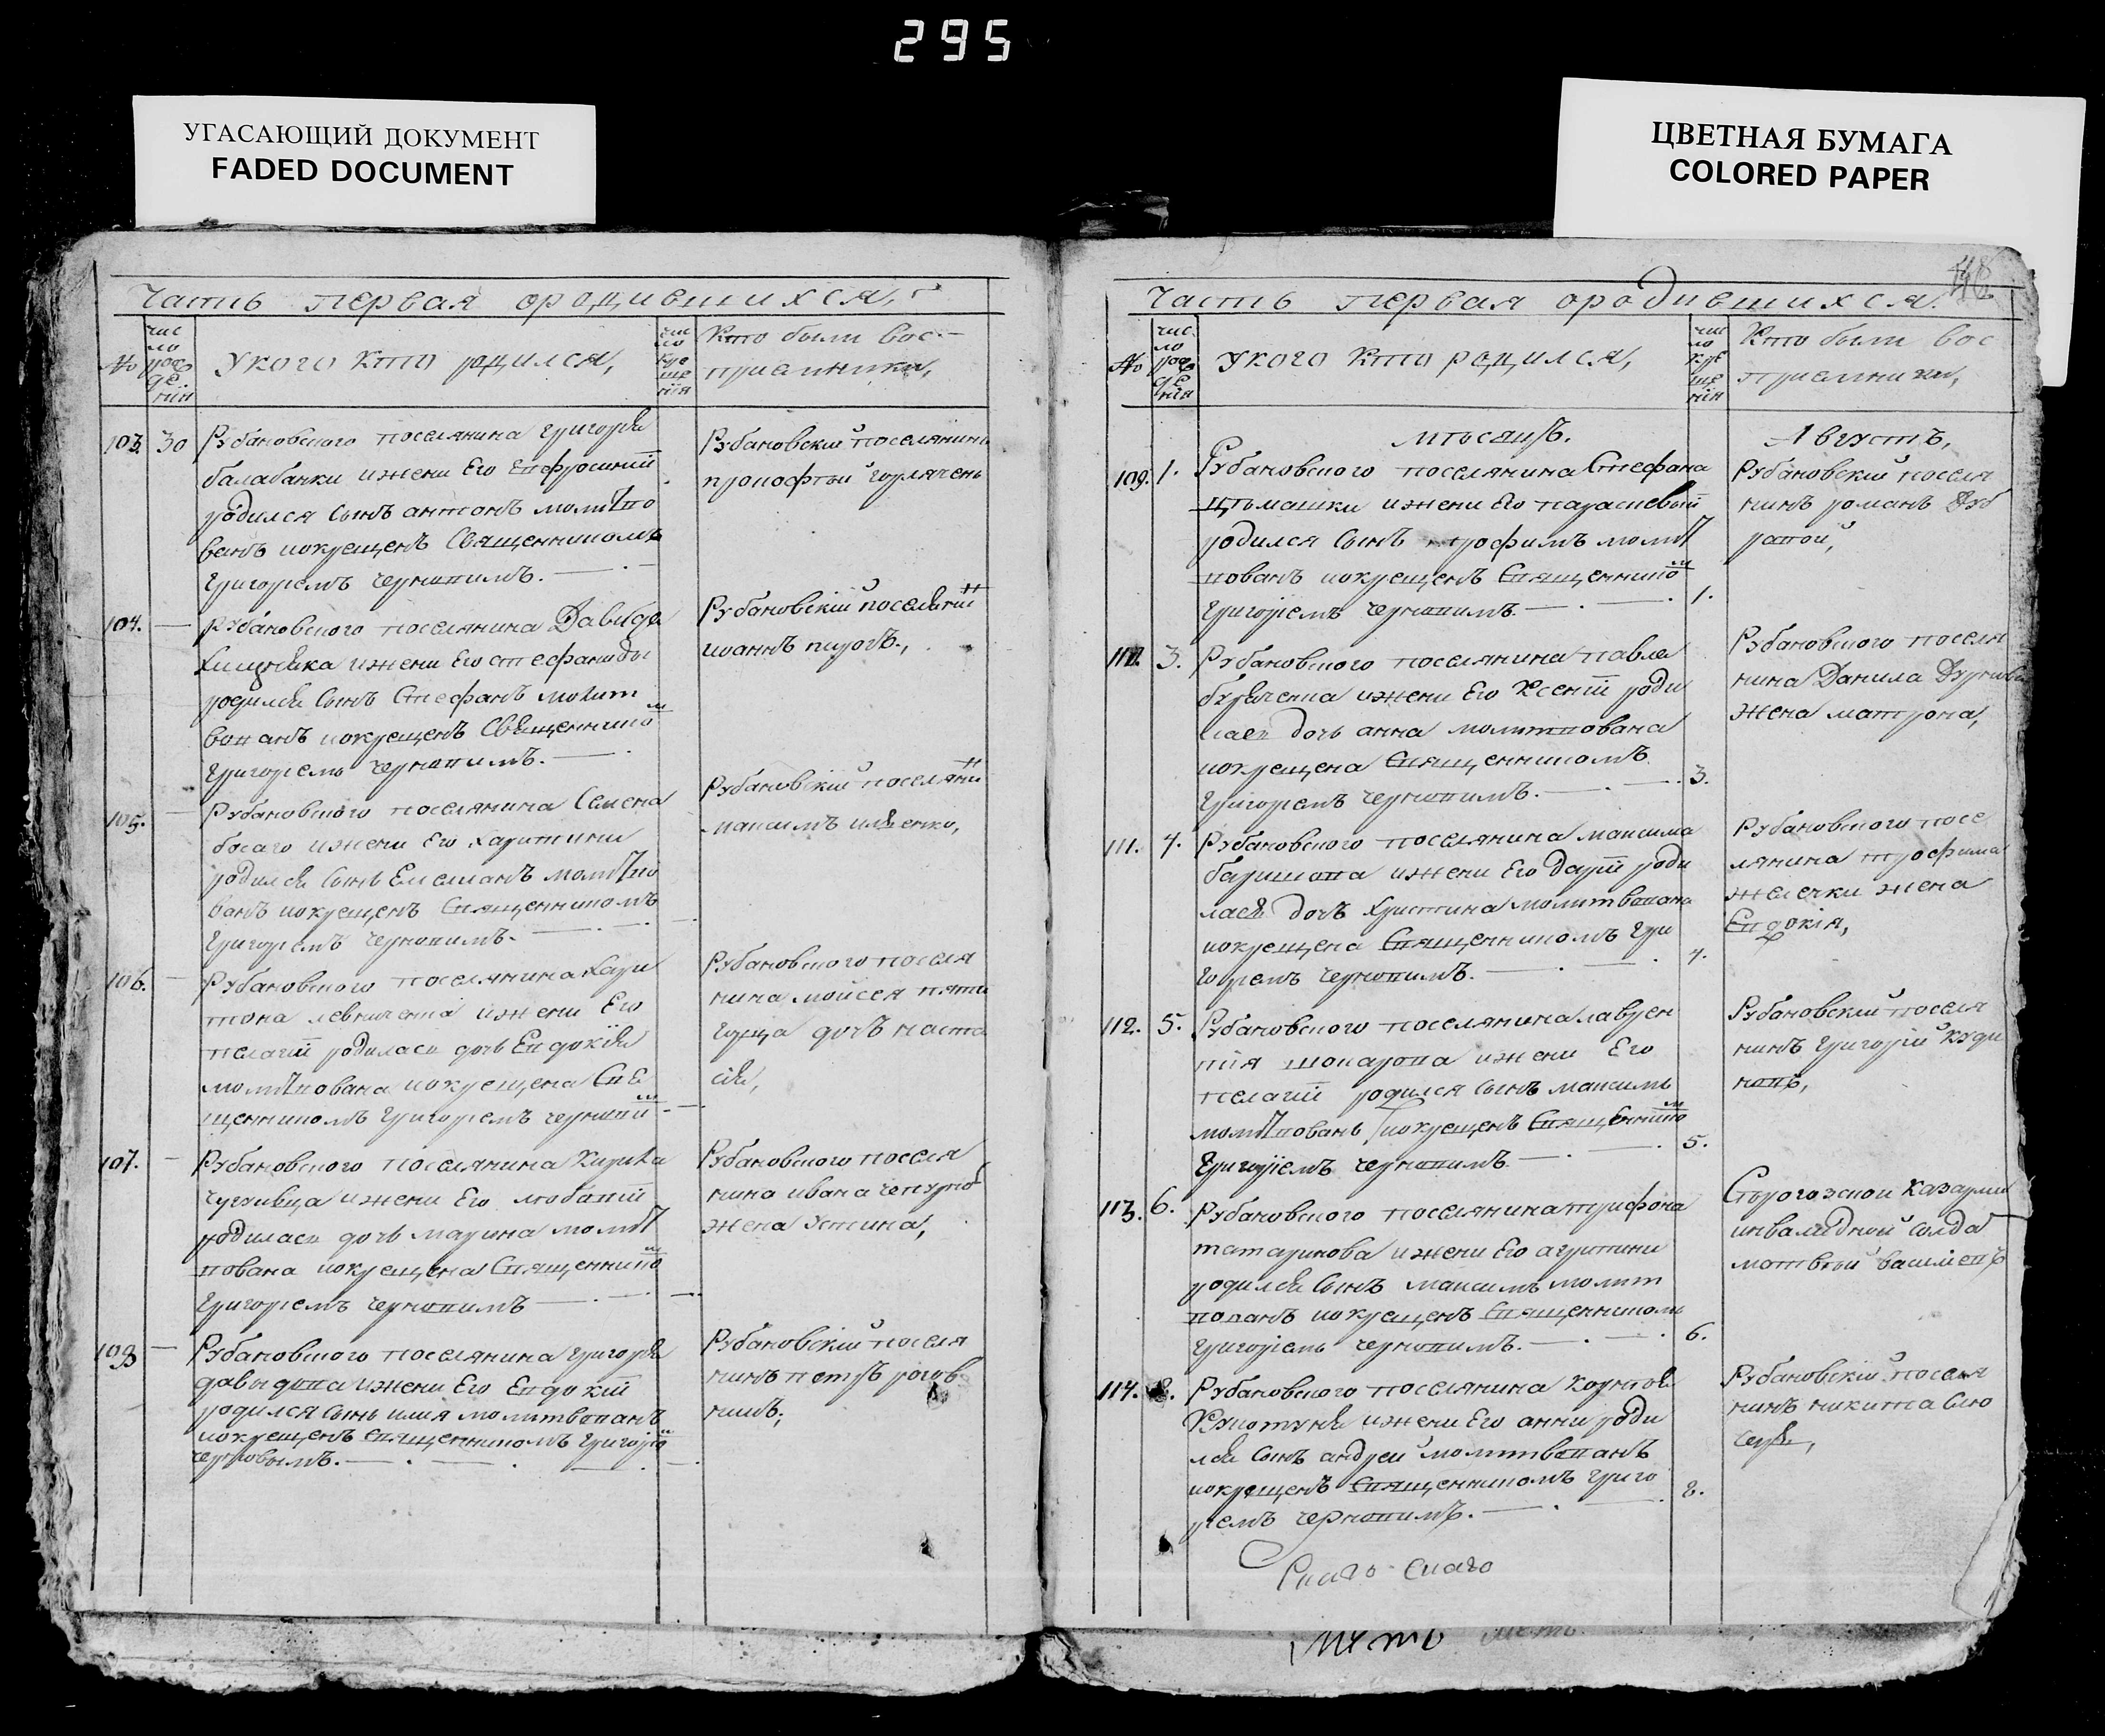 295
УГАСАЮЩИЙ ДОКУМЕНТ
FADED DOCUMENT
ЦВЕТНАЯ БУМАГА
COLORED PAPER
Часть первая ородившихся,
№
чис
ло
рож
де
нія
Укого кто родился,
чис
ло
кре
ще
нія
Кто были вос-
приемники,
103. 30 Рубановского поселянина григорія
балабанки ижени Его Епфросиніи
родился сынъ антонъ молитво
ванъ икрещенъ Священникомъ
григоріемъ черновимъ.
Рубановскій поселянинъ
прокофтъй
104. — рубановского поселянина Давида
ижени Его стефаниды
родился сынъ Стефанъ молит
вованъ икрещенъ Священнико м
григоріемъ черновимъ.
Рубановскій поселяни н
иоаннъ пирогъ.,
105. — Рубановского поселянина Семена
босаго ижени Его харитини
родился сынъ Емелианъ молитво
ванъ икрещенъ Священникомъ
григоріемъ черновимъ.
Рубановскій поселяни н
максимъ иляенко,
106. — Рубановского поселянина хари
тона левниченка ижени Его
пелагіи родилася дочь Евдокія
молитвована икрещена Свя
щенникомъ григоріемъ чернови м
Рубановского поселя
нина мойсея пяти
дочь наста
сія,
107. — Рубановского поселянина кирила
чугуивца ижени Его любовіи
родилася дочь марина молит
вована икрещена Священнико м
григоріемъ черновимъ
Рубановского поселя
нина ивана чепурно
жена Устина,
108 — Рубановского поселянина григорія
давидова ижени Его Евдокіи
родился сынъ илия молитвованъ
икрещенъ священникомъ григоріе м
черновымъ.
Рубановскій поселя
нинъ петръ рогов
никъ;
Часть первая ородившихся.
№
чис
ло
рож
де
нія
Укого кто родился,
чис
ло
кре
ще
нія
Кто были вос
приемники,
мъсацъ. Августъ,
109. 1. Рубановского поселянина Стефана
ижени Его параскевыи
родился сынъ трофимъ молит
вованъ икрещенъ Священнико м
григоріемъ черновимъ 1.
Рубановскій поселя
нинъ романъ Дуб
ровой,
110. 3. Рубановского поселянина павла
ижени Его Ксеніи роди
лася дочь анна молитвована
икрещена Священникомъ
григоріемъ черновимъ. 3.
Рубановского поселя
нина Данила
жена матрона,
111. 4. Рубановского поселянина максима
баришова ижени Его даріи роди
лася дочъ христина молитвована
икрещена Священникомъ гри
горіемъ черновимъ. 4.
Рубановского посе
лянина трофима
желечки жена
Евдокія,
112. 5. Рубановского поселянина лаврен
тія шокарова ижени Его
пелагіи родился сынъ максимъ
молитвованъ икрещенъ Священнико м
григоріемъ черновимъ 5.
Рубановскій поселя
нинъ григорій куди
новъ,
113. 6. Рубановского поселянина трифона
татаринова ижени Его агрипини
родился сынъ максимъ молит
вованъ икрещенъ Священникомъ
григоріемъ черновимъ. 6.
Сърогозской казарми
инвалидной солда
матвъй василіевъ
114. 8. Рубановского поселянина корнъя
ижени Его анни роди
лся сынъ андрей молитвованъ
икрещенъ Священникомъ григо
ріемъ черновимъ. 8.
Рубановскій поселя
нинъ никита Слю
саръ,